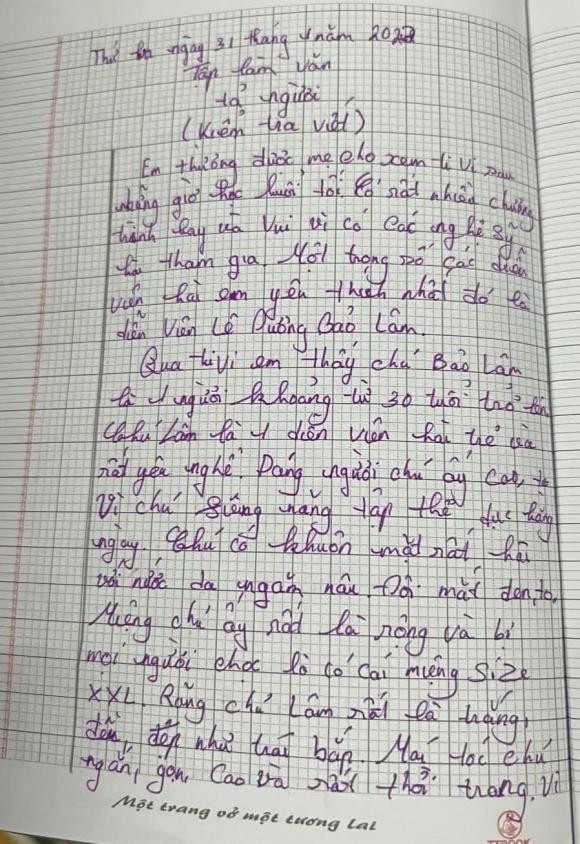 Thứ ba ngày 31 tháng 1 năm 2023
Tập làm văn
tả người
(Kiểm tra viết)
Em thường được mẹ cho xem ti vi sau
những giờ học buổi tối. Có rất nhiều chương
trình hay và vui vì có các nghệ sỹ
hài tham gia. Một trong số các diễn
viên hài em yêu thích nhất đó là
diễn viên Lê Dương Bảo Lâm.
Qua ti vi em thấy chú Bảo Lâm
là 1 người khoảng từ 30 tuổi trở lên.
Chú Lâm là 1 diễn viên hài trẻ và
rất yêu nghề. Dáng người chú ấy cao, to
vì chú siêng năng tập thể dục hằng
ngày. Chú có khuôn mặt rất hài
với nước da ngăm nâu. Đôi mắt đen, to.
Miệng chú ấy rất là rộng và bị
mọi người chọc là có cái miệng size
XXL. Răng chú Lâm rất là trắng,
đều, đẹp như trái bắp. Mái tóc chú
ngắn, gọn, cao và rất thời trang. Vì
Một trang vở một tương lai
TTBOOK